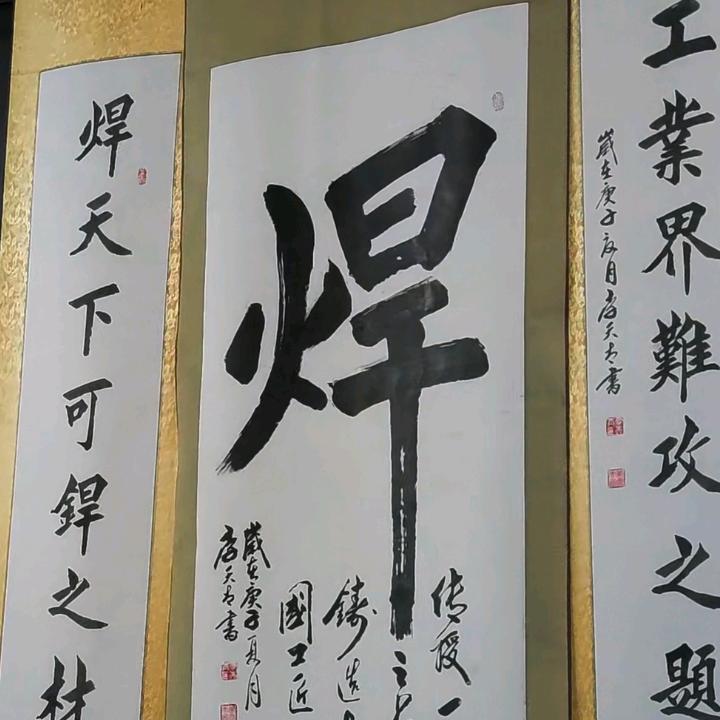 工業界難攻之題
歲在庚子夏月
焊
传授一
之
鑄造
國工匠
歲在庚子夏月
焊天下可銲之材